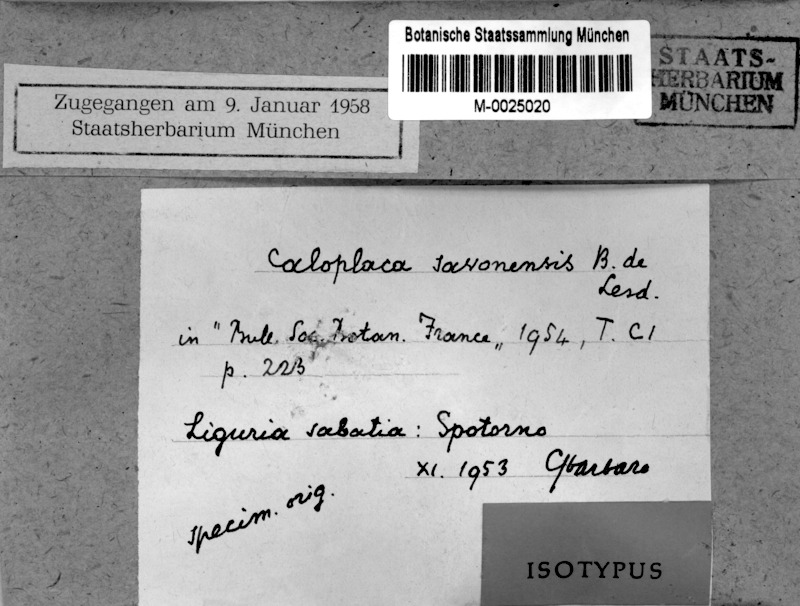 Botanische Staatssammlung München
M-0025020
STAATS-
HERBARIUM
MÜNCHEN
Zugegangen am 9. Januar 1958
Staatsherbarium München
Caloplaca savonensis B. de
Lesd.
in "Bull. Soc. Botan. France„ 1954, T. CI
p. 223
Liguria sabatia: Spotorno
XI. 1953 GSbarbaro
specim. orig.
ISOTYPUS